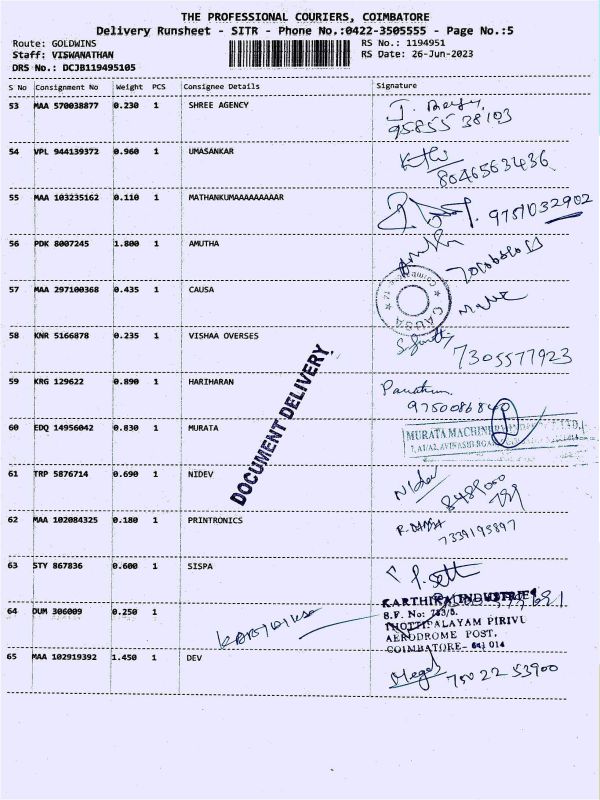 THE PROFESSIONAL COURIERS, COIMBATORE
Delivery Runsheet - SITR - Phone No.:0422-3505555 - Page No.:5
Route: GOLDWINS RS No.: 1194951
Staff: VISWANATHAN RS Date: 26-Jun-2023
DRS No.: DCJB119495105
S No Consignment No Weight PCS Consignee Details Signature
53 MAA 570038877 0.230 1 SHREE AGENCY
95855 38103
54 VPL 944139372 0.960 1 UMASANKAR
8046563436
55 MAA 103235162 0.110 1 MATHANKUMAAAAAAAAAR
9751032902
56 PDK 8007245 1.800 1 AMUTHA
57 MAA 297100368 0.435 1 CAUSA
CAUSA
58 KNR 5166878 0.235 1 VISHAA OVERSES
7305577923
59 KRG 129622 0.890 1 HARIHARAN
9750086840
DOCUMENT DELIVERY
60 EDQ 14956042 0.830 1 MURATA
MURATA MACHINERY LTD.
61 TRP 5876714 0.690 1 NIDEV
Nidev
8489000
62 MAA 102084325 0.180 1 PRINTRONICS
7339195897
63 STY 867836 0.600 1 SISPA
64 DUM 306009 0.250 1
KARTHIKA INDUSTRIES
S.F. No: 783/5.
THOTTIPALAYAM PIRIVU
AERODROME POST,
COIMBATORE- 641 014
65 MAA 102919392 1.450 1 DEV
75022 53900